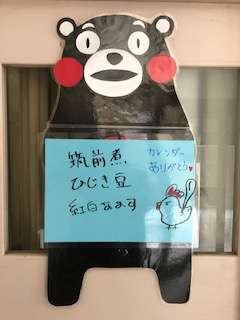 筑前煮
ひじき豆
紅白なます
カレンダー
ありがとう♥